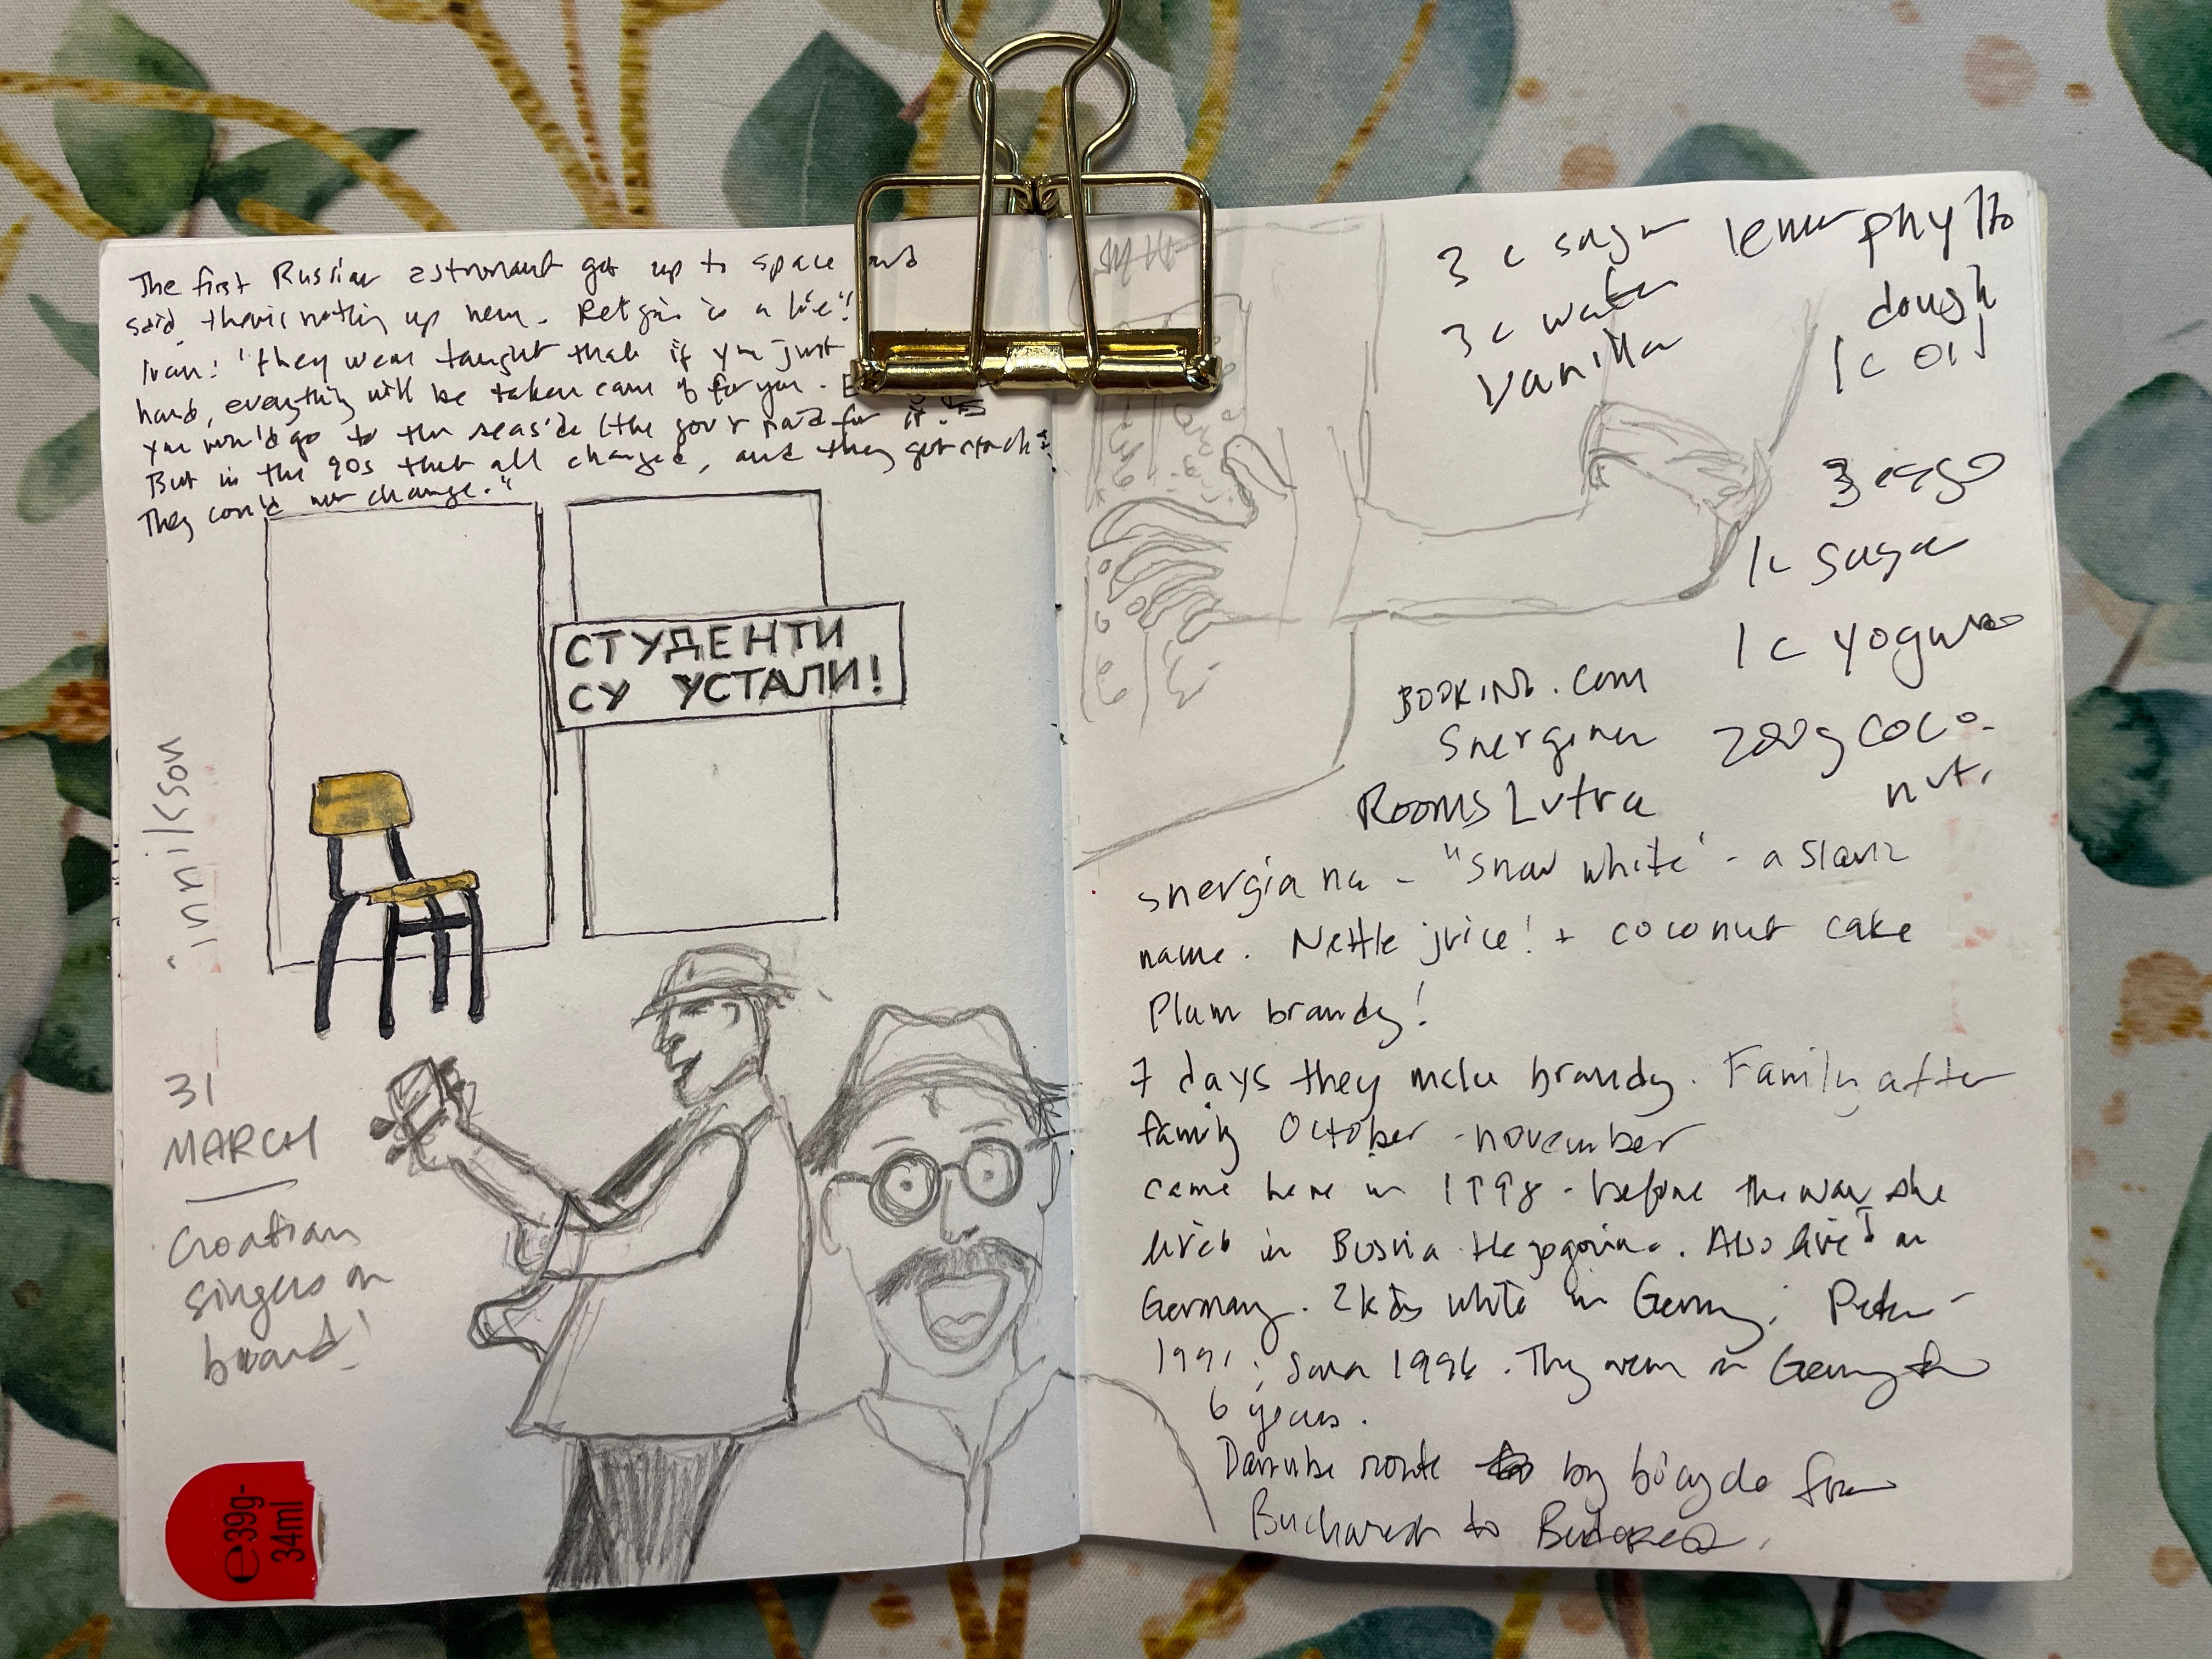 The first Russian astronaut got up to space and
said there is nothing up here. Religion is a lie"!
Ivan: "they were taught that if you just
hard, everything will be taken care of for you.
You would go to the seaside (the gov't paid for it.
But in the 90s that all changed, and they got stuck
They could not change."
СТУДЕНТИ
СУ УСТАЛИ!
innilson
31
MARCH
Croatian
singers on
board!
e39g-
34ml
3 c sugar
3 c water
vanilla
lemon phyllo
dough
1c oil
3 eggs
1c sugar
1c yogurt
200g coco-
nut.
BOOKING.com
Rooms Lutra
- "snow white" - a Slavic
name. Nettle juice! + coconut cake
Plum brandy!
7 days they make brandy. Family after
family October - november
came here in 1998 - before the war she
lived in Bosnia Hezogovina. Also lived in
Germany. 2 kids while in Germany: Peter -
1991; Sara 1996. They were in Germany for
6 years.
Danube route by bicycle from
Bucharest to Budapest.